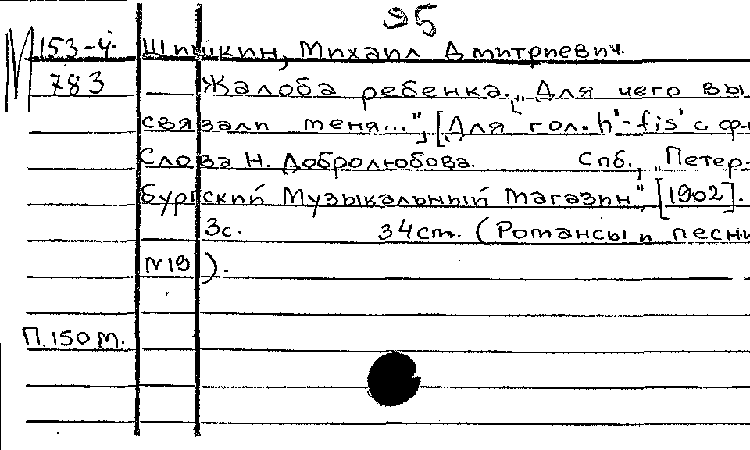 95
М 153-4 Шишкин, Михаил Дмитриевич
783 Жалоба ребенка. "Для чего вы
связали меня...". [Для гол. h'-fis² с ф-
Слова Н. Добролюбова. Спб., "Петер-
бургский Музыкальный магазин", [1902].
3с. 34см. (Романсы и песни
№19).
П.150 м.